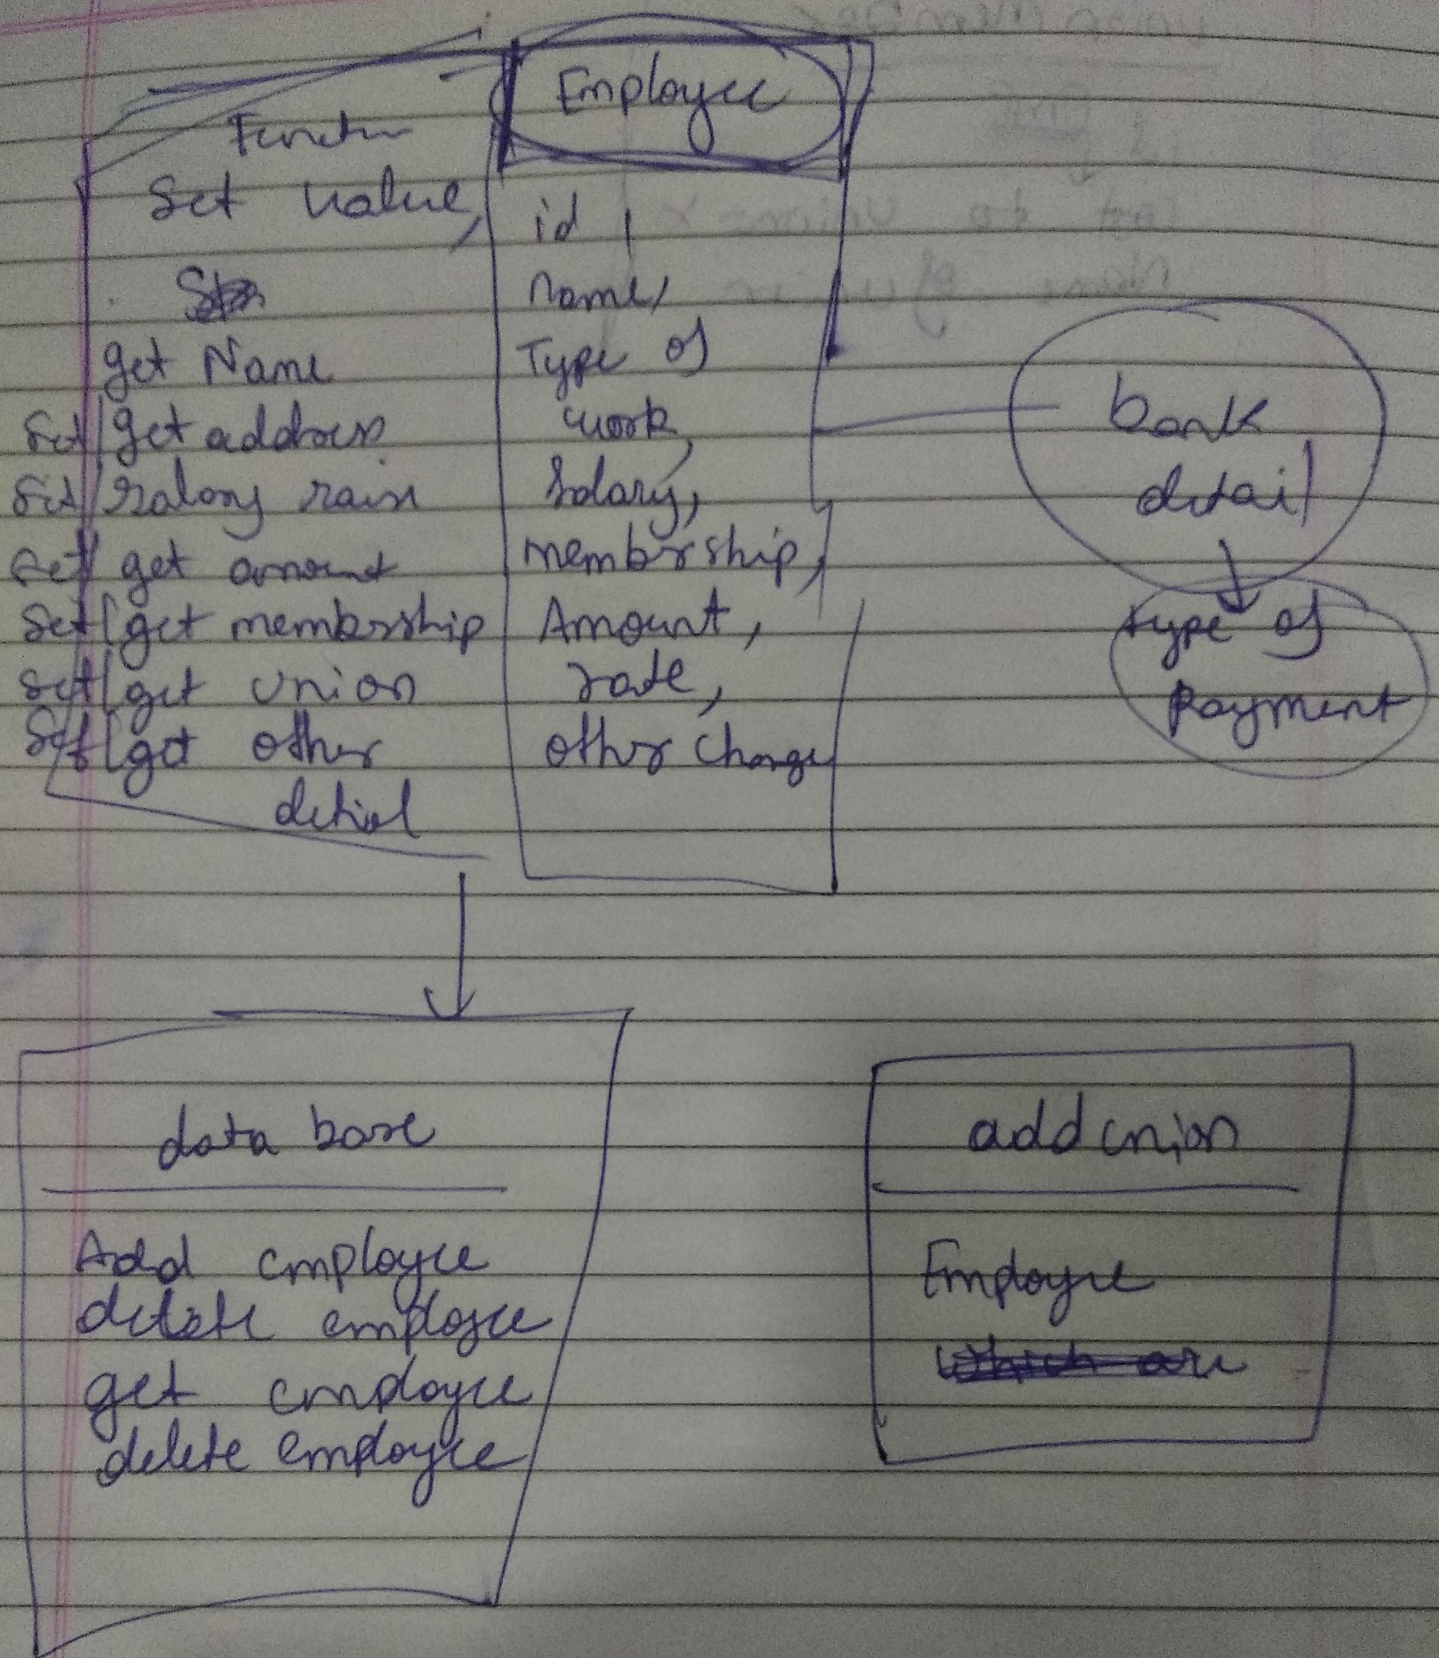 Employee
Functn
Set value,
get Name
Set/get address
Set/
Set/get amount
Set/get membership
Set/get union
Set/get other
detial
id,
name,
Type of
work,
Salary,
membership,
Amount,
rate,
other charge
bank
detail
type of
Payment
data base
Add employee
delete employee
get employee
delete employee
add union
Employee
which are